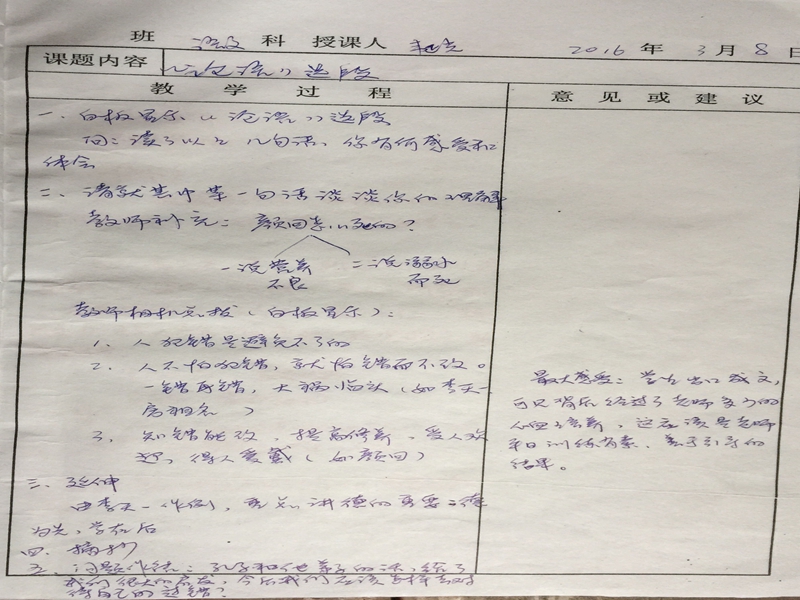 班 语文 科 授课人 2016 年 3 月 8 日
课题内容 《论语》选段
教 学 过 程
意 见 或 建 议
一、白板显示《论语》选段
问：读了以上几句话，你有何感受和
体会
二、请就其中某一句话谈谈你的理解
教师补充：颜回怎么死的？
一说营养 二说溺水
不良 而死
教师相机点拨（白板显示）：
1、人犯错是避免不了的
2、人不怕犯错，就怕错而不改。
一错再错，大祸临头（如李天一
房祖名）
3、知错能改，提高修养，受人欢
迎，得人爱戴（如颜回）
三、延伸
由李天一作例，告知讲德的重要：德
为先，学在后
四、摘抄
五、问题作结：孔子和他弟子的话，给了
我们很大的启发，今后我们应该怎样去对
待自己的过错？
最大感受：学生出口成文，
可见背后经过了老师多少的
心血培养，这应该是老师
平日训练有素、善于引导的
结果。